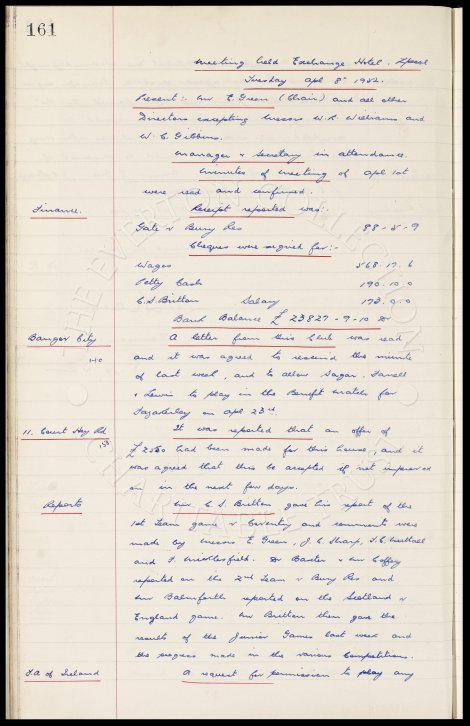 161
Meeting held Exchange Hotel, L'pool
Tuesday Apl 8th 1952.
Present:- Mr E. Green (Chair) and all other
Directors excepting Messrs W.R. Williams and
W.C. Gibbins.
Manager & Secretary in attendance.
Minutes of Meeting of Apl 1st
were read and confirmed.
Finance. Receipt reported was:-
Gate v Bury Res 88-8-9
Cheques were signed for:-
Wages 568.17.6
Petty Cash 190.10.0
C.S. Britton Salary
Bank Balance £ 23827-9-10 Dr
Bangor City A letter from this Club was read
and it was agreed to rescind the minute
of last week, and to allow Sagar, Farrell
& Lewis to play in the Benefit Match for
on Apl 23rd.
11. Court Hey Rd It was reported that an offer of
158 had been made for this house, and it
was agreed that this be accepted if not improved
on in the next few days.
Reports Mr. C.S. Britton gave his report of the
1st Team game v Coventry and comments were
made by Messrs E. Green, J.C. Sharp,
and F. Micklesfield. Dr Baxter & Mr Coffey
reported on the 2nd Team v Bury Res and
Mr Balmforth reported on the Scotland v
England game. Mr Britton then gave the
results of the Junior Games last week and
the progress made in the various Competitions.
F.A of Ireland A request for permission to play any
THE EVERTON COLLECTION
CHARITABLE TRUST